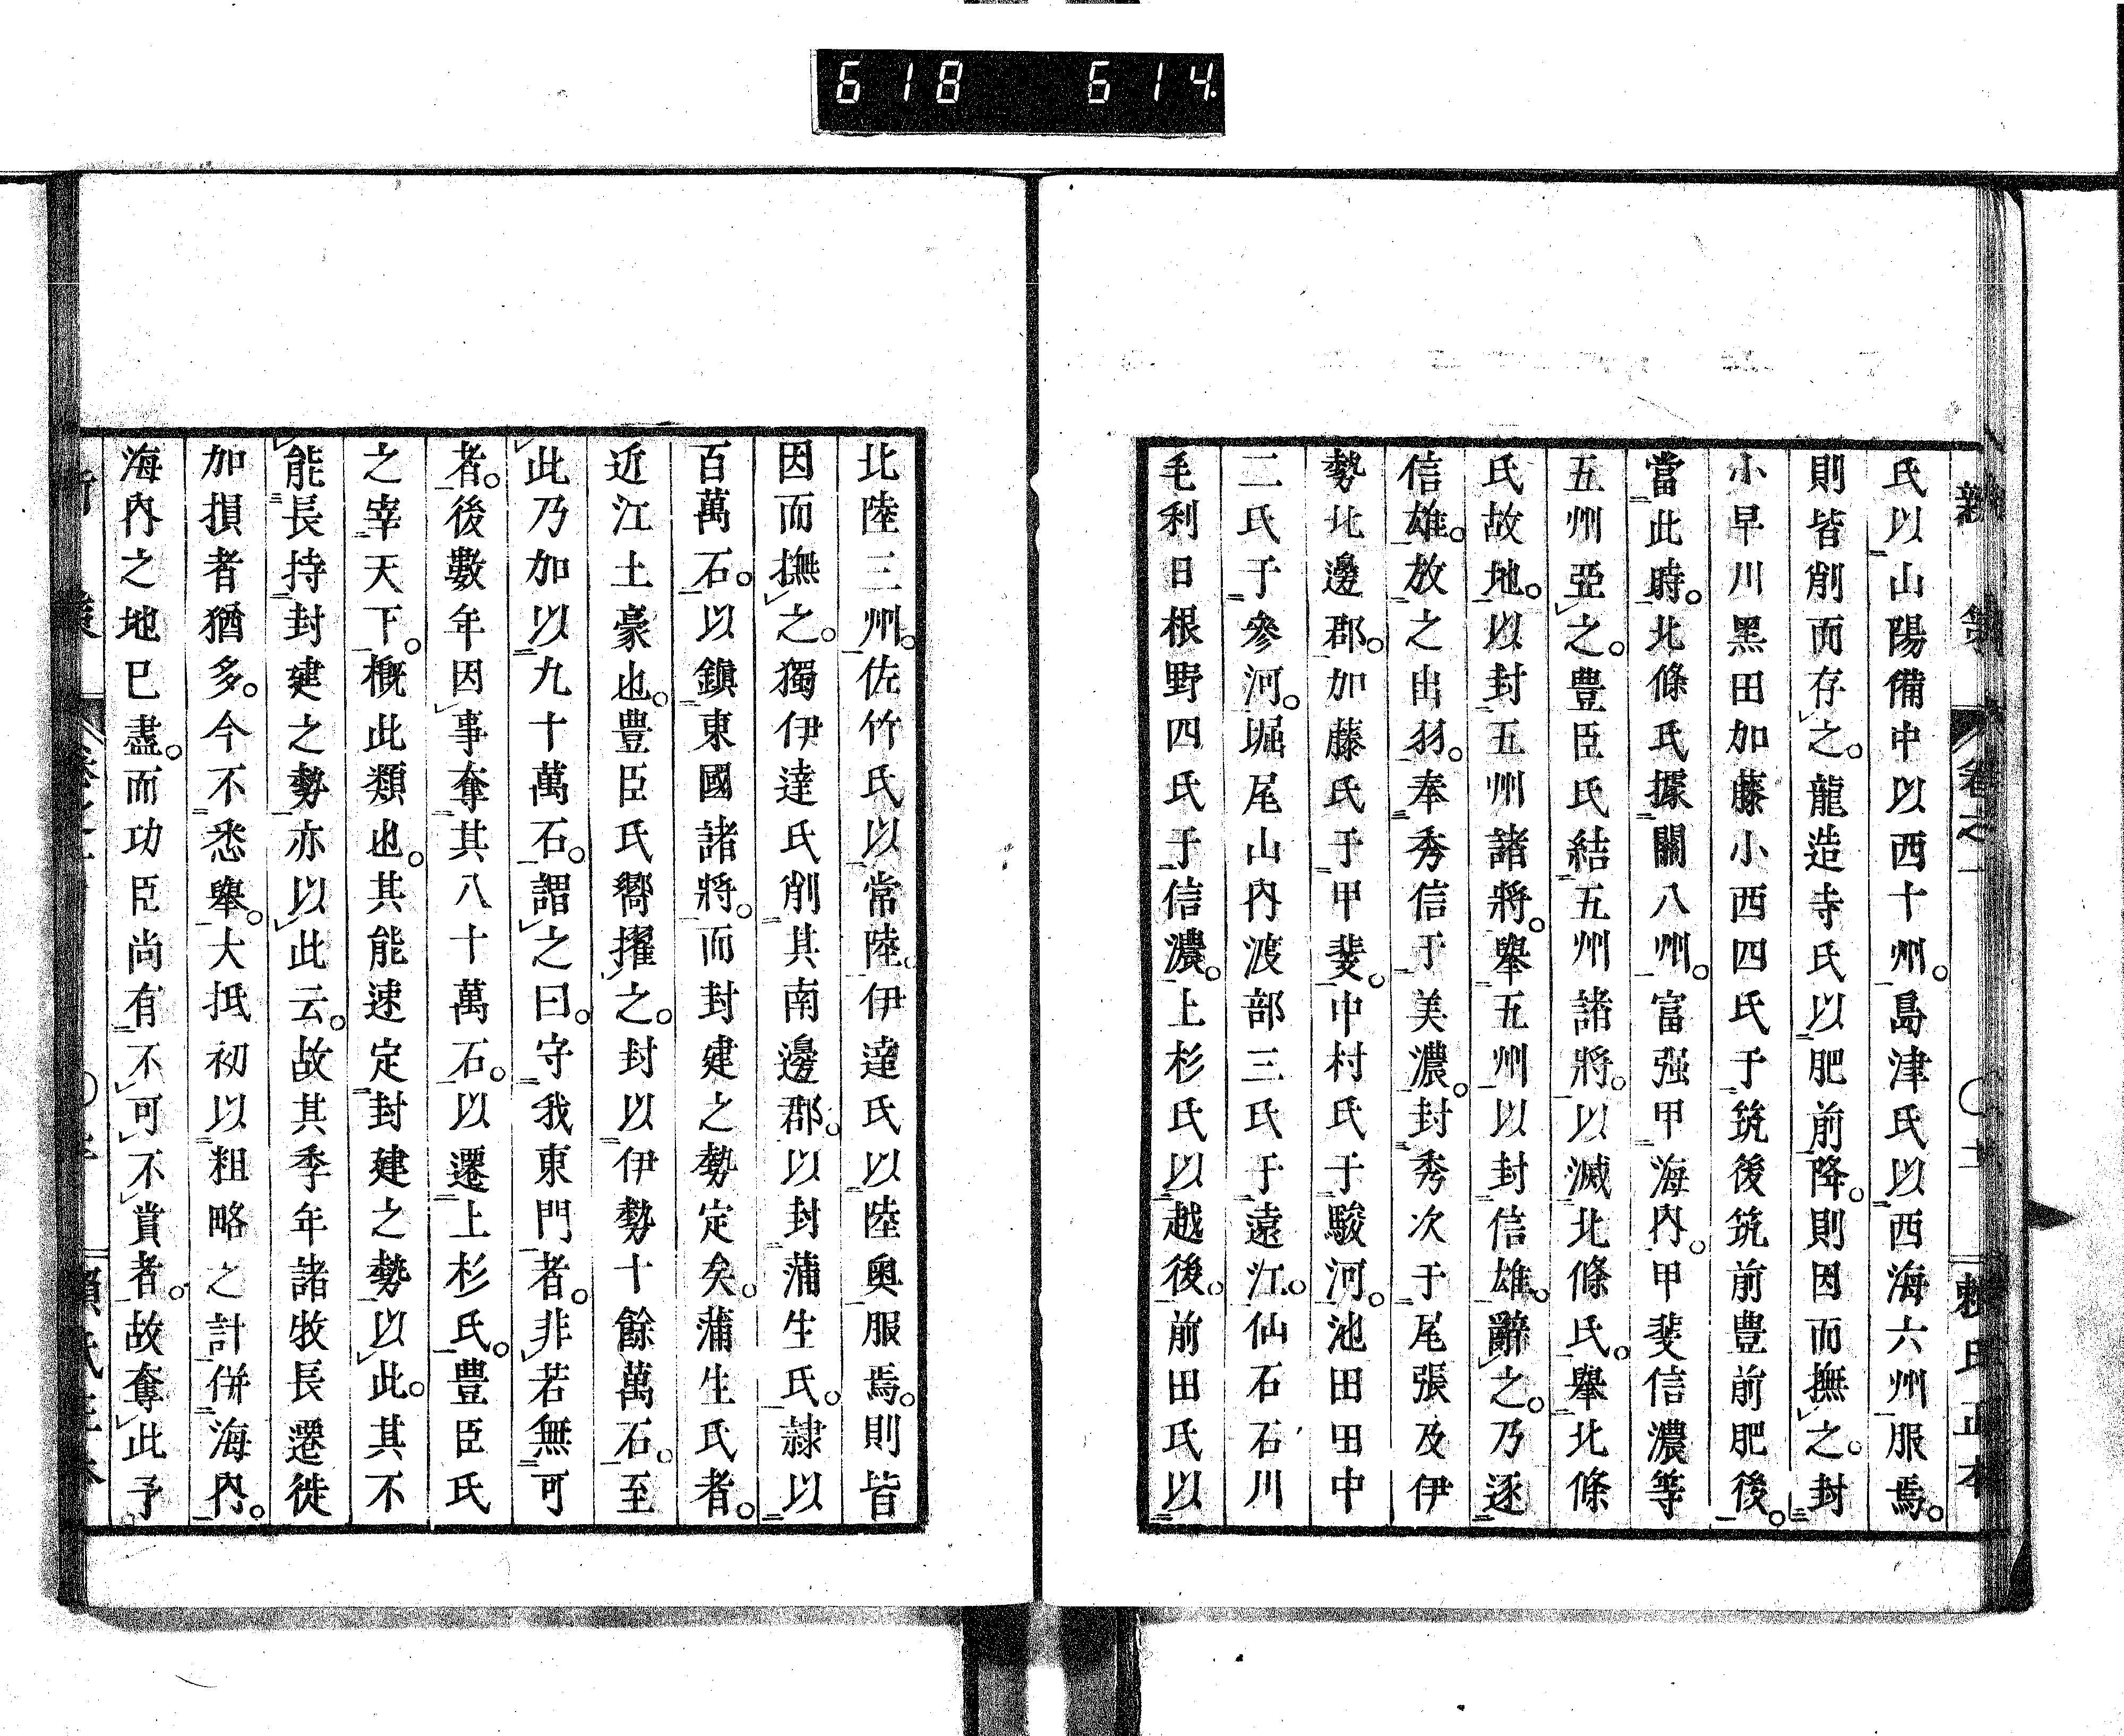 618 614
新策 卷之一 賴氏正本
氏以山陽備中以西十州。島津氏以西海六州服焉。
則皆削而存之。龍造寺氏以肥前降。則因而撫之。封
小早川黑田加藤小西四氏于筑後筑前豊前肥後。
當此時。北條氏據關八州。富强甲海內。甲斐信濃等
五州亞之。豊臣氏結五州諸將。以滅北條氏。舉北條
氏故地。以封五州諸將。舉五州以封信雄。辭之。乃逐
信雄。放之出羽。奉秀信于美濃。封秀次于尾張及伊
勢北邊郡。加藤氏于甲斐。中村氏于駿河。池田田中
二氏于參河。堀尾山內渡部三氏于遠江。仙石石川
毛利日根野四氏于信濃。上杉氏以越後。前田氏以
北陸三州。佐竹氏以常陸。伊達氏以陸奧服焉。則皆
因而撫之。獨伊達氏削其南邊郡。以封蒲生氏。隷以
百萬石。以鎭東國諸將。而封建之勢定矣。蒲生氏者。
近江土豪也。豊臣氏嚮擢之。封以伊勢十餘萬石。至
此乃加以九十萬石。謂之曰。守我東門者。非若無可
者。後數年因事奪其八十萬石。以遷上杉氏。豊臣氏
之宰天下。概此類也。其能速定封建之勢以此。其不
能長持封建之勢。亦以此云。故其季年諸牧長遷徙
加損者猶多。今不悉舉。大抵初以粗略之計。併海內。
海內之地已盡。而功臣尚有不可不賞者。故奪此予